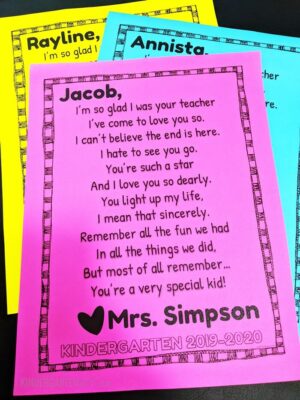 Rayline,
I'm so glad I
Annista,
Jacob,
I'm so glad I was your teacher
I've come to love you so.
I can't believe the end is here.
I hate to see you go.
You're such a star
And I love you so dearly.
You light up my life,
I mean that sincerely.
Remember all the fun we had
In all the things we did,
But most of all remember...
You're a very special kid!
Mrs. Simpson
KINDERGARTEN 2019-2020